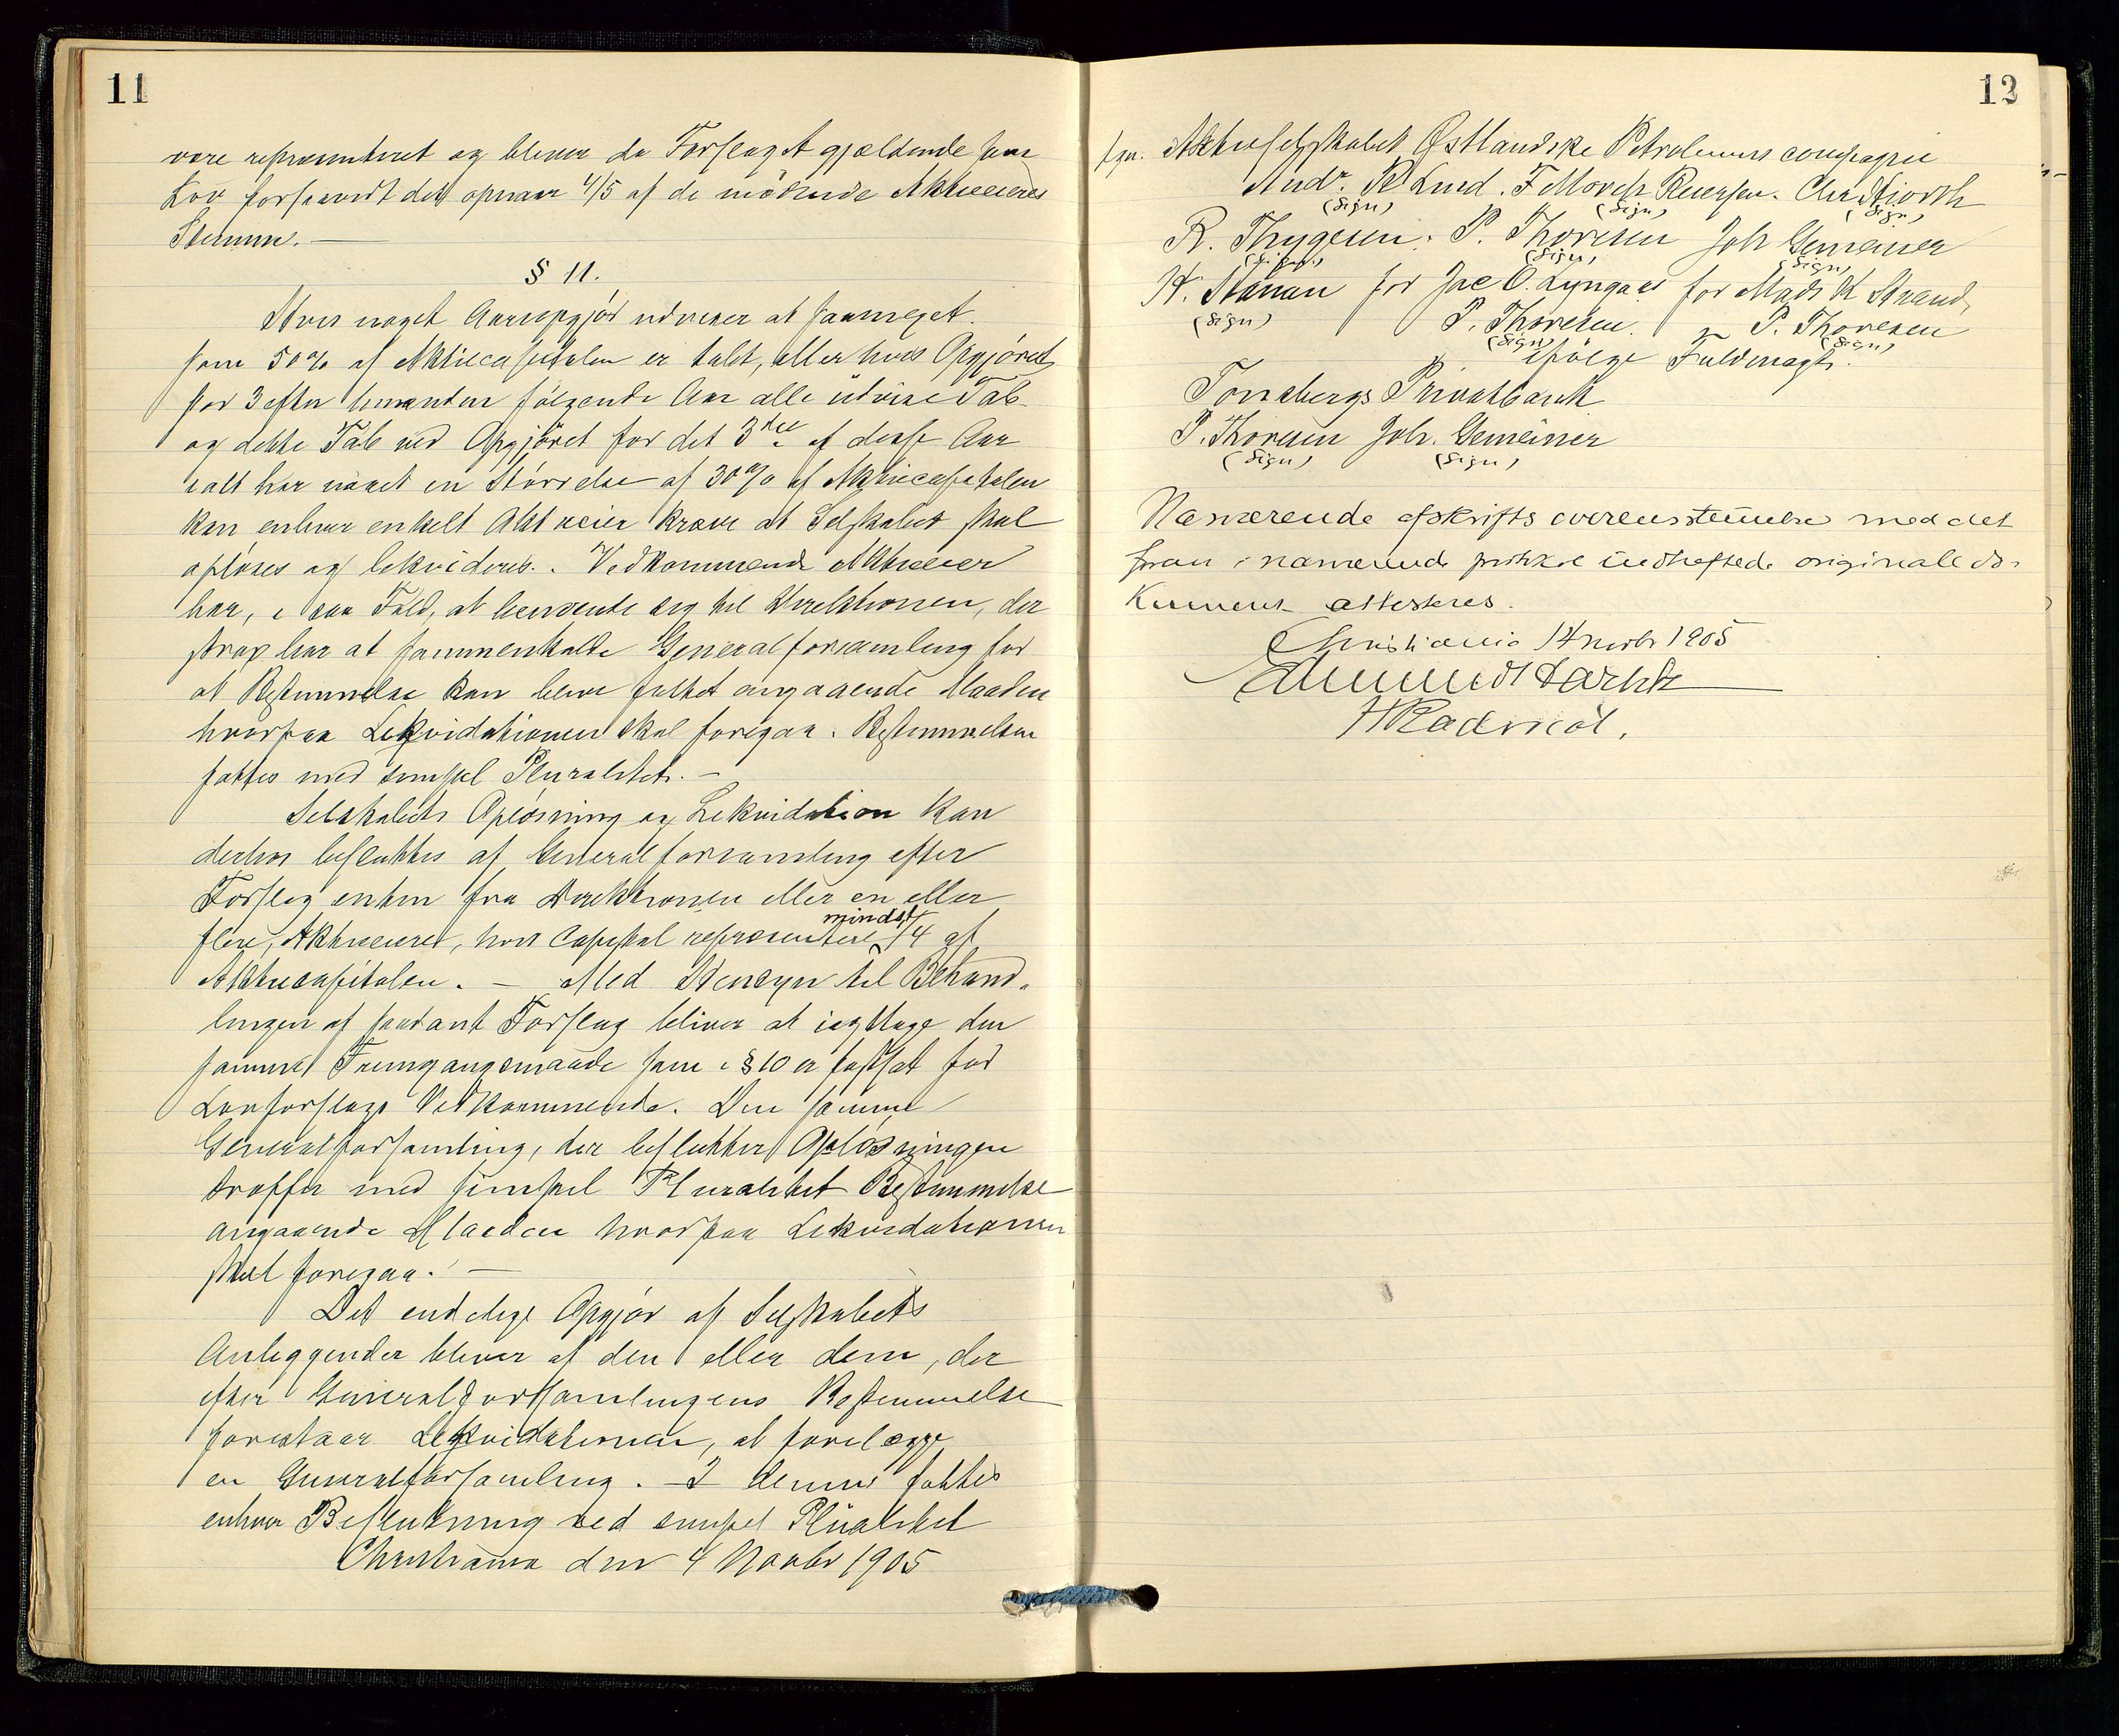 11
være repræsenteret og bliver da Forslaget gjældende som
Lov forsaavidt det opnaar 4/5 af de mødende Aktieeieres
Stemmer. —
§ 11.
Hvis noget Aarsopgjør udviser at saameget
som 50% af Aktiecapitalen er tabt, eller hvis Opgjøret
for 3 efter hinanden følgende Aar alle udviser Tab
og dette Tab ved Opgjøret for det 3die af disse Aar
ialt har naaet en Størrelse af 30% af Aktiecapitalen
kan enhver enkelt Aktieeier kræve at Selskabet skal
opløses og likvideres. Vedkommende Aktieeier
har, i saa Fald, at henvende sig til Direktionen, der
strax har at sammenkalde Generalforsamling for
at Bestemmelse kan blive fattet angaaende Maaden
hvorpaa Likvidationen skal foregaa. Bestemmelsen
fattes med simpel Pluralitet. —
Selskabets Opløsning og Likvidation kan
derhos besluttes af Generalforsamling efter
Forslag enten fra Direktionen eller en eller
flere Aktieeiere, hvis Capital repræsenterer mindst 1/4 af
Aktiecapitalen. — Med Hensyn til Behand-
lingen af saadant Forslag bliver at iagttage den
samme Fremgangsmaade som i § 10 er fastsat for
Lovforslags Vedkommende. Den samme
Generalforsamling, der beslutter Opløsningen
træffer med simpel Pluralitet Bestemmelse
angaaende Maaden hvorpaa Likvidationen
skal foregaa. —
Det endelige Opgjør af Selskabets
Anliggender bliver af den eller dem, der
efter Generalforsamlingens Bestemmelse
forestaar Likvidationen, at forelægge
en Generalforsamling. — I denne fattes
enhver Beslutning ved simpel Pluralitet
Christiania den 4 Novbr 1905
12
Aktieselskabet Østlandske Petroleumscompagni
Andr. Lund. F Morch Reiersen. Chr Hjorth
(Sign) (Sign) (Sign)
R. Thygesen. P. Thoresen Joh Gemeiner
(Sign) (Sign) (Sign)
H. Hanan for Jac O. Lyngaas for Mads K Strand
(Sign) P. Thoresen. P. Thoresen
(Sign) (Sign)
ifølge Fuldmagt.
Tonsbergs Privatbank
P. Thoresen Joh. Gemeiner
(Sign) (Sign)
Nærværende afskrifts overensstemmelse med det
foran i nærværende protokol indheftede originale do-
kument attesteres.
Christiania 14 novbr 1905